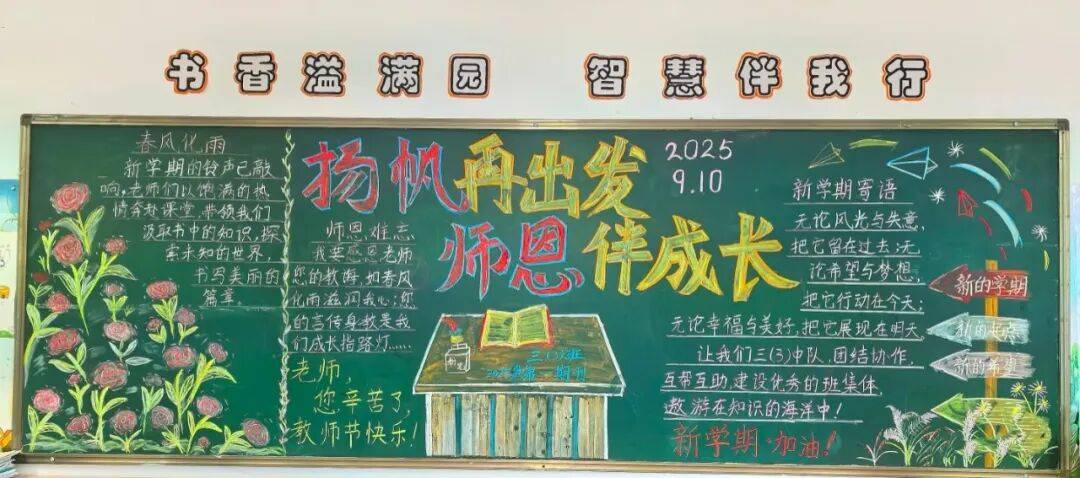 书香溢满园 智慧伴我行
春风化雨
新学期的铃声已敲
响,老师们以饱满的热
情奔赴课堂,带领我们
汲取书中的知识,探
索未知的世界,
书写美丽的
篇章。
扬帆再出发
师恩伴成长
2025
9.10
师恩难忘
我要感恩老师
您的教诲,如春风
化雨滋润我心;您
的言传身教是我
们成长指路灯……
老师,
您辛苦了,
教师节快乐!
三(3)班
第一期刊
新学期寄语
无论风光与失意,
把它留在过去;无
论希望与梦想,
把它行动在今天;
无论幸福与美好,把它展现在明天
让我们三(3)中队,团结协作,
互帮互助,建设优秀的班集体
遨游在知识的海洋中!
新学期·加油!
新的学期
新的起点
新的希望